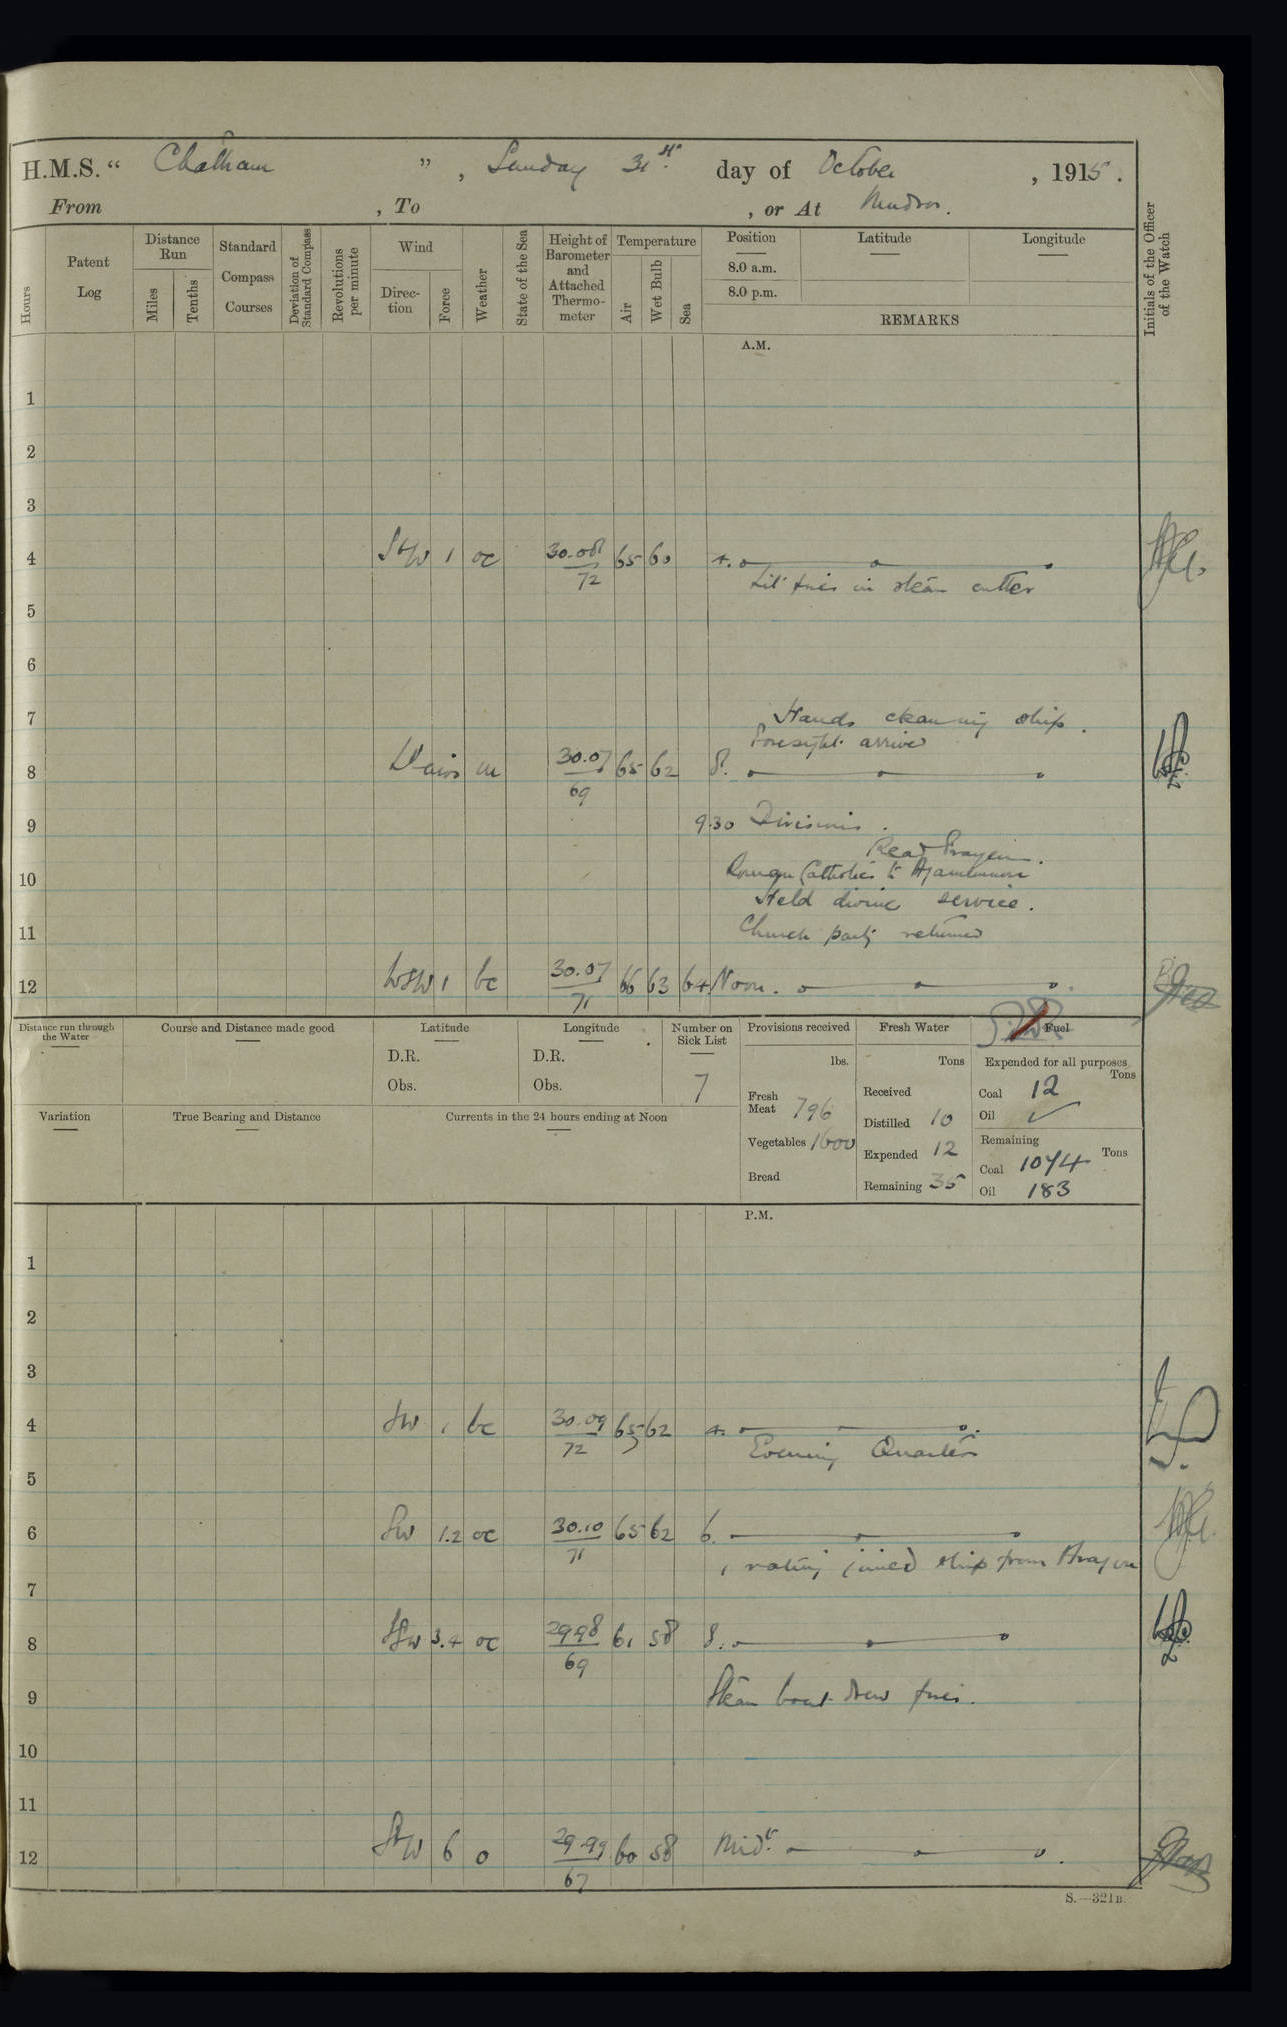 H.M.S. “ Chatham ” , Sunday 31st day of October , 1915 .
From , To , or At Mudros.
Hours
Patent Log
Distance Run
Miles
Tenths
Standard Compass Courses
Deviation of Standard Compass
Revolutions per minute
Wind
Direction
Force
Weather
State of the Sea
Height of Barometer and Attached Thermometer
Temperature
Air
Wet Bulb
Sea
Position
8.0 a.m.
8.0 p.m.
Latitude
Longitude
REMARKS
Initials of the Officer of the Watch
A.M.
1
2
3
4 1 oc 30.08 65 60 4.
72
Lit fires in steam cutter
5
6
7 Hands cleaning ship.
Foresight arrived
8 airs m 30.07 65 62 8.
69
9 9.30 Divisions.
Read Prayers.
10 Roman Catholics to Agamemnon
Held divine service.
11 Church party returned
12 WSW 1 bc 30.07 66 63 64 Noon.
71
Distance run through the Water
Course and Distance made good
Latitude
D.R.
Obs.
Longitude
D.R.
Obs.
Number on Sick List
7
Provisions received
lbs.
Fresh Meat 796
Vegetables 1600
Bread
Fresh Water
Tons
Received
Distilled 10
Expended 12
Remaining 35
Fuel
Expended for all purposes
Tons
Coal 12
Oil ✓
Remaining
Tons
Coal 1074
Oil 183
Variation
True Bearing and Distance
Currents in the 24 hours ending at Noon
P.M.
1
2
3
4 SW 1 bc 30.09 65 62 4.
72
Evening Quarters
5
6 SW 1.2 oc 30.10 65 62 6.
71
1 rating joined ship from Aragon
7
8 SSW 3.4 oc 29.98 61 58 8.
69
9 Steam boat drew fires.
10
11
12 6 o 29.99 60 58 Midt.
67
S.—321B.